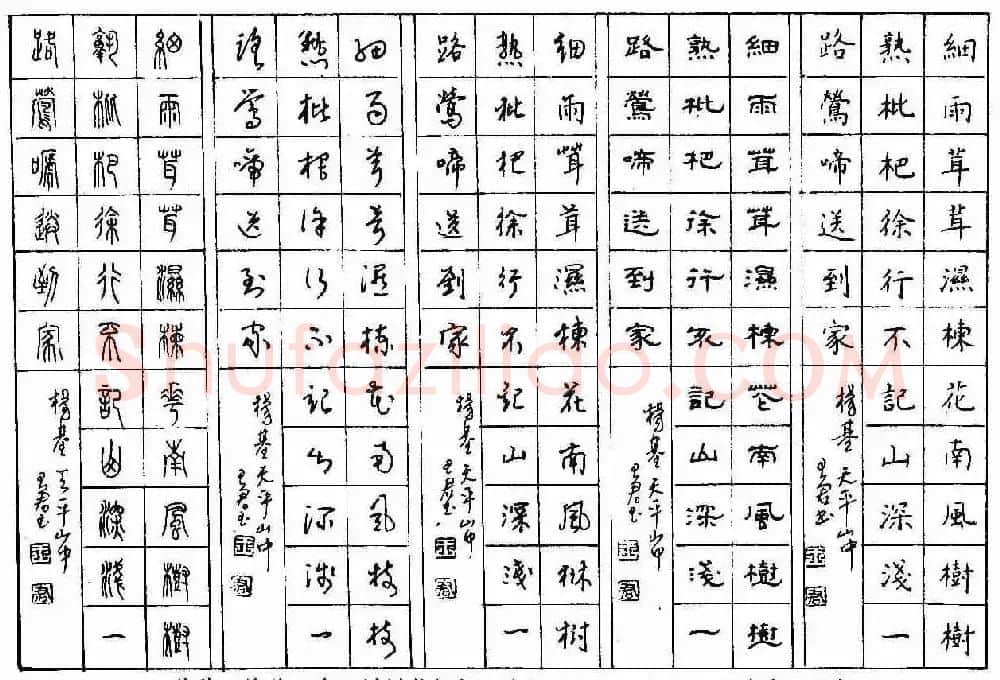 細雨茸茸濕楝花南風樹樹
熟枇杷徐行不記山深淺一
路鶯啼送到家
楊基天平山中
細雨茸茸濕楝花南風樹樹
熟枇杷徐行不記山深淺一
路鶯啼送到家
楊基天平山中
細雨茸茸濕楝花南風樹樹
熟枇杷徐行不記山深淺一
路鶯啼送到家
楊基天平山中
細雨茸茸濕楝花南風樹樹
熟枇杷徐行不記山深淺一
路鶯啼送到家
楊基天平山中
細雨茸茸濕楝花南風樹樹
熟枇杷徐行不記山深淺一
路鶯啼送到家
楊基天平山中
Shufaziliao.COM